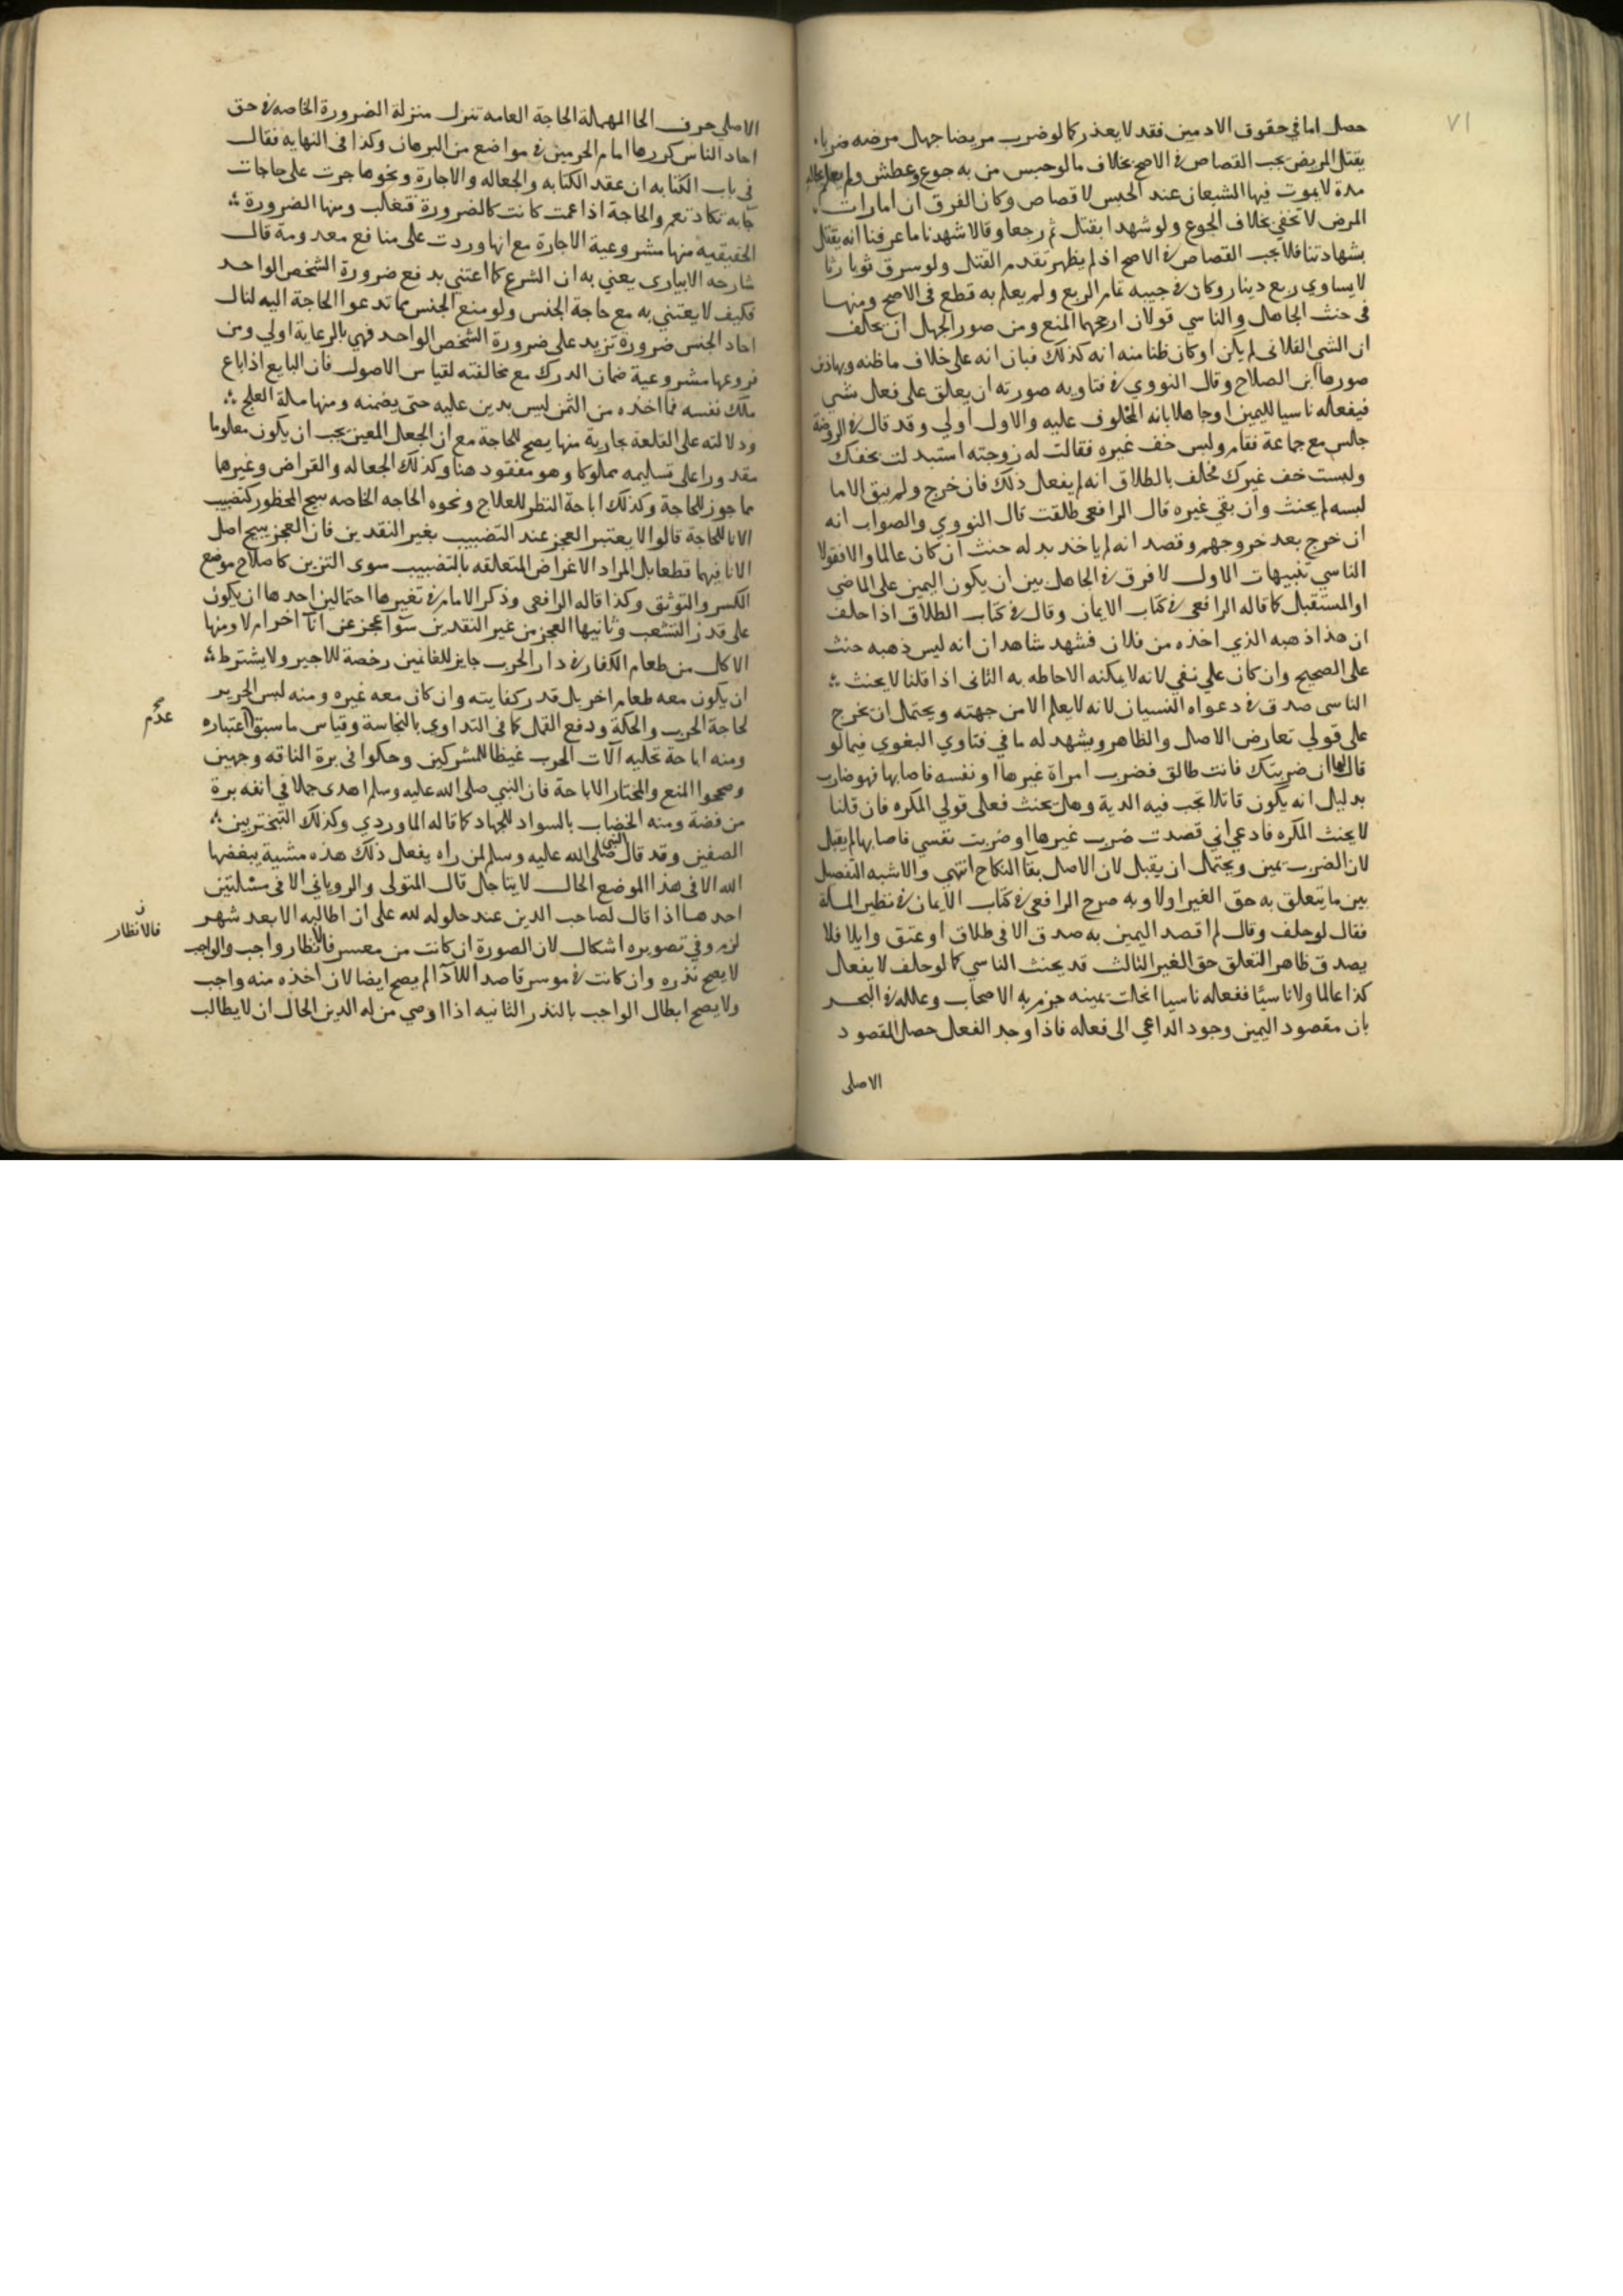 ٧١
حصل اما في حقوق الادمين فقد لا يعذر كما لو ضرب مريضا جهل مرضه ضربا
يقتل المريض يجب القصاص في الاصح بخلاف ما لو حبس من به جوع وعطش ولم يعلم بحاله
مدة لا يموت فيها الشبعان عند الحبس لا قصاص وكان الفرق ان امارات
المرض لا تخفي بخلاف الجوع ولو شهدا بقتل ثم رجعا وقالا شهدنا ما عرفنا انه يقتل
بشهادتنا فلا يجب القصاص في الاصح اذ لم يظهر تقدم القتل ولو سرق ثوبا رثا
لا يساوي ربع دينار وكان في جيبه تمام الربع ولم يعلم به قطع فى الاصح ومنها
فى حنث الجاهل والناسي قولان ارجحهما المنع ومن صور الجهل ان يحلف
ان الشي الفلانى لم يكن او كان ظنا منه انه كذلك فبان انه على خلاف ما ظنه وبهاذين
صورها ابن الصلاح وقال النووي في فتاويه صورته ان يعلق على فعل شي
فيفعله ناسيا لليمين او جاهلا بانه المحلوف عليه والاول اولي وقد قال في الروضة
جالس مع جماعة فقام ولبس خف غيره فقالت له زوجته استبدلت بخفك
ولبست خف غيرك فحلف بالطلاق انه لم يفعل ذلك فان خرج ولم يبق الا ما
لبسه لم يحنث وان بقي غيره قال الرافعى طلقت قال النووي والصواب انه
ان خرج بعد خروجهم وقصد انه لم ياخذ بدله حنث ان كان عالما والا فقولا
الناسي تنبيهات الاول لا فرق في الجاهل بين ان يكون اليمين على الماضي
او المستقبل كما قاله الرافعى في كتاب الايمان وقال في كتاب الطلاق اذا حلف
ان هذا ذهبه الذي اخذه من فلان فشهد شاهدان انه ليس ذهبه حنث
على الصحيح وان كان علي نفي لانه لا يمكنه الاحاطه به الثانى اذا قلنا لا يحنث
الناسى صدق في دعواه النسيان لانه لا يعلم الا من جهته ويحتمل ان يخرج
على قولي تعارض الاصل والظاهر ويشهد له ما في فتاوي البغوي فيما لو
قال لها ان ضربتك فانت طالق فضرب امراة غيرها او نفسه فاصابها فهو ضارب
بدليل انه يكون قاتلا تجب فيه الدية وهل يحنث فعلى قولي المكره فان قلنا
لا يحنث المكره فادعي اني قصدت ضرب غيرها او ضربت نفسي فاصابها لم يقبل
لان الضرب يقين ويحتمل ان يقبل لان الاصل بقا النكاح انتهي والاشبه التفصيل
بين ما يتعلق به حق الغير او لا وبه صرح الرافعى في كتاب الايمان في نظير المسلة
فقال لو حلف وقال لم اقصد اليمين به صدق الا فى طلاق او عتق وايلا فلا
يصدق ظاهر التعلق حق الغير الثالث قد يحنث الناسي كما لو حلف لا يفعل
كذا عالما ولا ناسيا ففعله ناسيا انحلت يمينه جزم به الاصحاب وعلله في البحر
بان مقصود اليمين وجود الداعي الى فعله فاذا وجد الفعل حصل المقصود
الاصلى
الاصلي حرف الحا المهملة الحاجة العامه تنزل منزلة الضرورة الخاصه في حق
احاد الناس كررها امام الحرمين في مواضع من البرهان وكذا فى النهايه فقال
في باب الكتابه ان عقد الكتابه والجعاله والاجارة ونحوها جرت على حاجات
تكاد تعم والحاجة اذا عمت كانت كالضرورة فتغلب ومنها الضرورة
الحقيقيه منها مشروعية الاجارة مع انها وردت على منافع معدومة قال
شارحه الابياري يعني به ان الشرع كما اعتني بدفع ضرورة الشخص الواحد
فكيف لا يعتني به مع حاجة الجنس ولو منع الجنس مما تدعوا الحاجة اليه لنال
احاد الجنس ضرورة تزيد على ضرورة الشخص الواحد فهي بالرعاية اولي ومن
فروعها مشروعية ضمان الدرك مع مخالفته لقياس الاصول فان البايع اذا باع
ملك نفسه فما اخذه من الثمن ليس بدين عليه حتى يضمنه ومنها مسلة العلج
ودلالته على القلعة بجارية منها يصح للحاجة مع ان الجعل المعين يجب ان يكون معلوما
مقدورا على تسليمه مملوكا وهو مفقود هنا وكذلك الجعاله والقراض وغيرها
مما جوز للحاجة وكذلك اباحة النظر للعلاج ونحوه الحاجه الخاصه تبيح المحظور كتضبيب
الانا للحاجة قالوا لا يعتبر العجز عند التضبيب بغير النقدين فان العجز يبيح اصل
الانا فيهما قطعا بل المراد الاغراض المتعلقه بالتضبيب سوى التزين كاصلاح موضع
الكسر والتوثق وكذا قاله الرافعى وذكر الامام في تفسيرها احتمالين احدها ان يكون
على قدر التشعب وثانيها العجز من غير النقدين سوآ عجز عن انآ اخر ام لا ومنها
الاكل من طعام الكفار في دار الحرب جايز للغانمين رخصة للاجير ولا يشترط
ان يكون معه طعام اخر بل قدر كفايته وان كان معه غيره ومنه لبس الحرير
لحاجة الجرب والحكة ودفع القمل كما فى التداوي بالنجاسة وقياس ما سبق اعتباره
عدم
ومنه اباحة تحليه آلات الحرب غيظا للمشركين وحكوا فى برة الناقه وجهين
وصححوا المنع والمختار الاباحة فان النبي صلى الله عليه وسلم اهدى جملا في انفه برة
من فضة ومنه الخضاب بالسواد للجهاد كما قاله الماوردي وكذلك التبختر بين
الصفين وقد قال النبي صلى الله عليه وسلم لمن راه يفعل ذلك هذه مشية يبغضها
الله الا في هذا الموضع الحال لا يتاجل قال المتولى والروياني الا فى مسئلتين
احدهما اذا قال لصاحب الدين عند حلوله لله على ان اطالبه الا بعد شهر
لزم وفي تصويره اشكال لان الصورة ان كانت من معسر فالانظار واجب والواجب
ن
فالانظار
لا يصح نذره وان كانت في موسر قاصدا للادآ لم يصح ايضا لان اخذه منه واجب
ولا يصح ابطال الواجب بالنذر الثانيه اذا اوصي من له الدين الحال ان لا يطالب